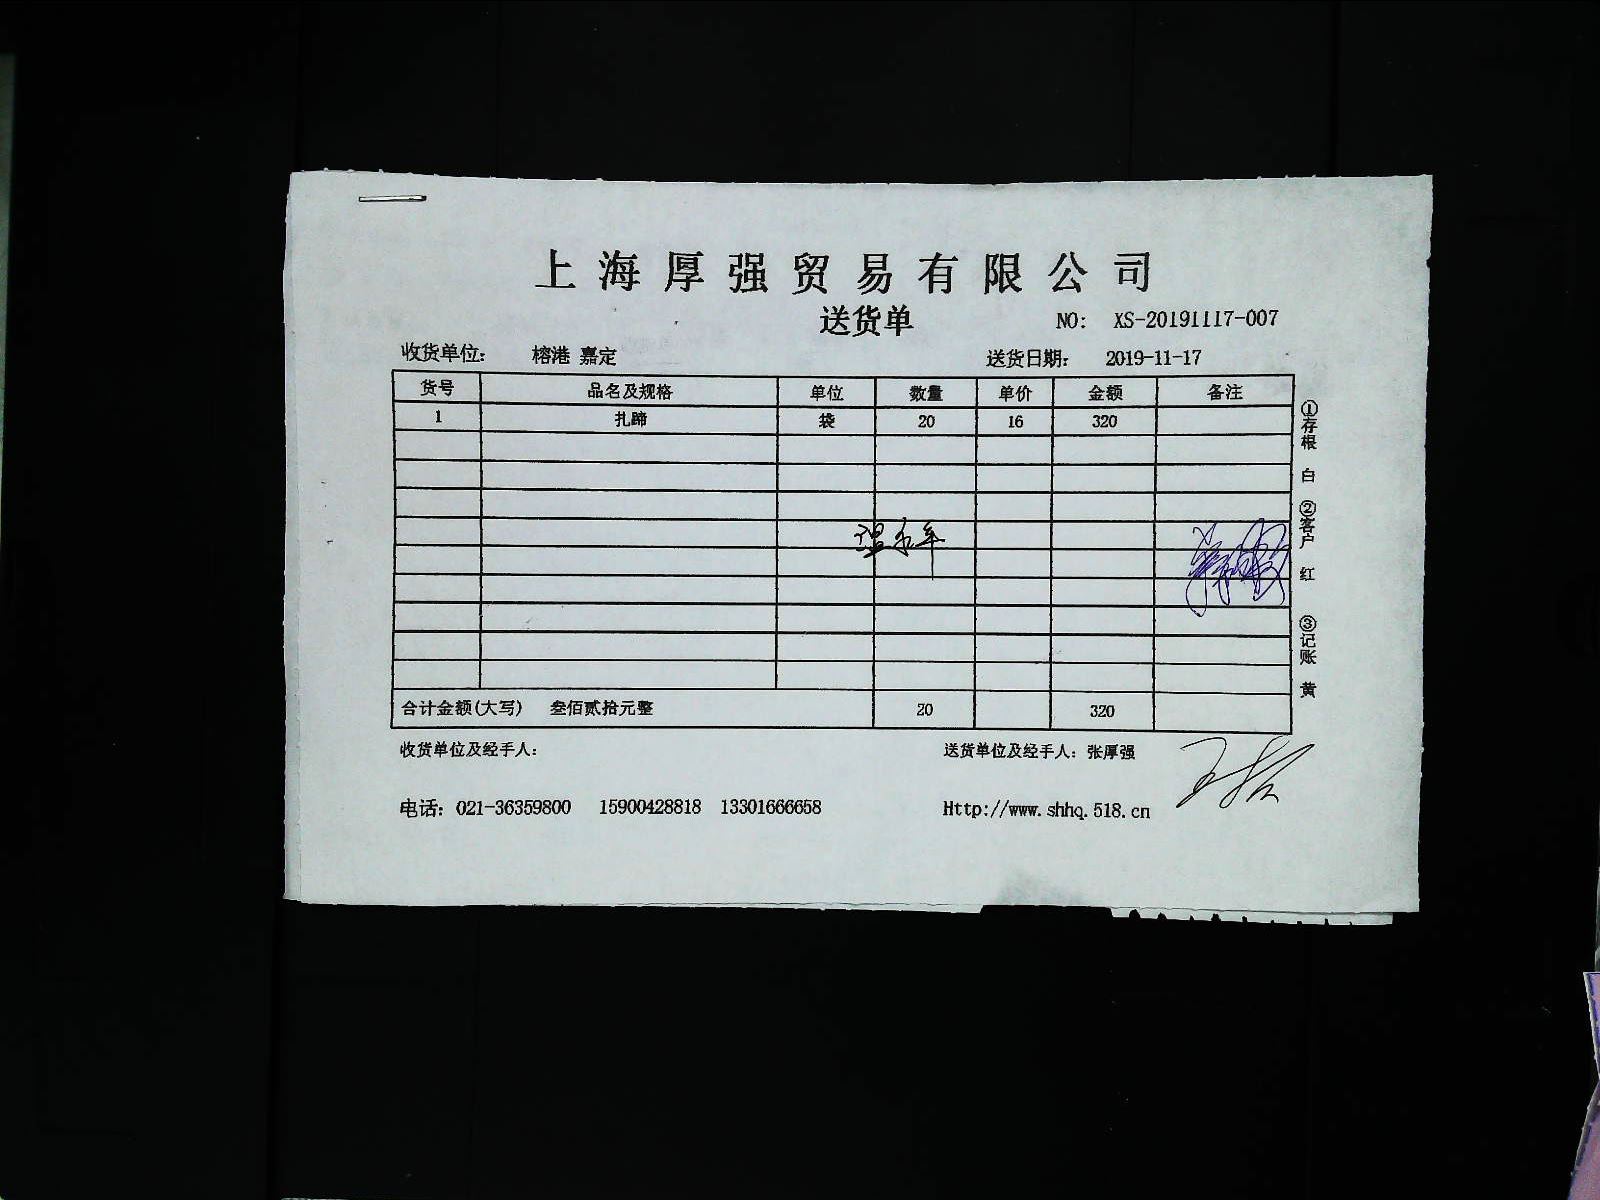 上海厚强贸易有限公司
送货单 NO: XS-20191117-007
收货单位: 榕港 嘉定 送货日期: 2019-11-17
货号 品名及规格 单位 数量 单价 金额 备注
1 扎蹄 袋 20 16 320
合计金额(大写) 叁佰贰拾元整 20 320
收货单位及经手人: 送货单位及经手人: 张厚强
电话: 021-36359800 15900428818 13301666658 Http://www.shhq.518.cn
①存根 白 ②客户 红 ③记账 黄